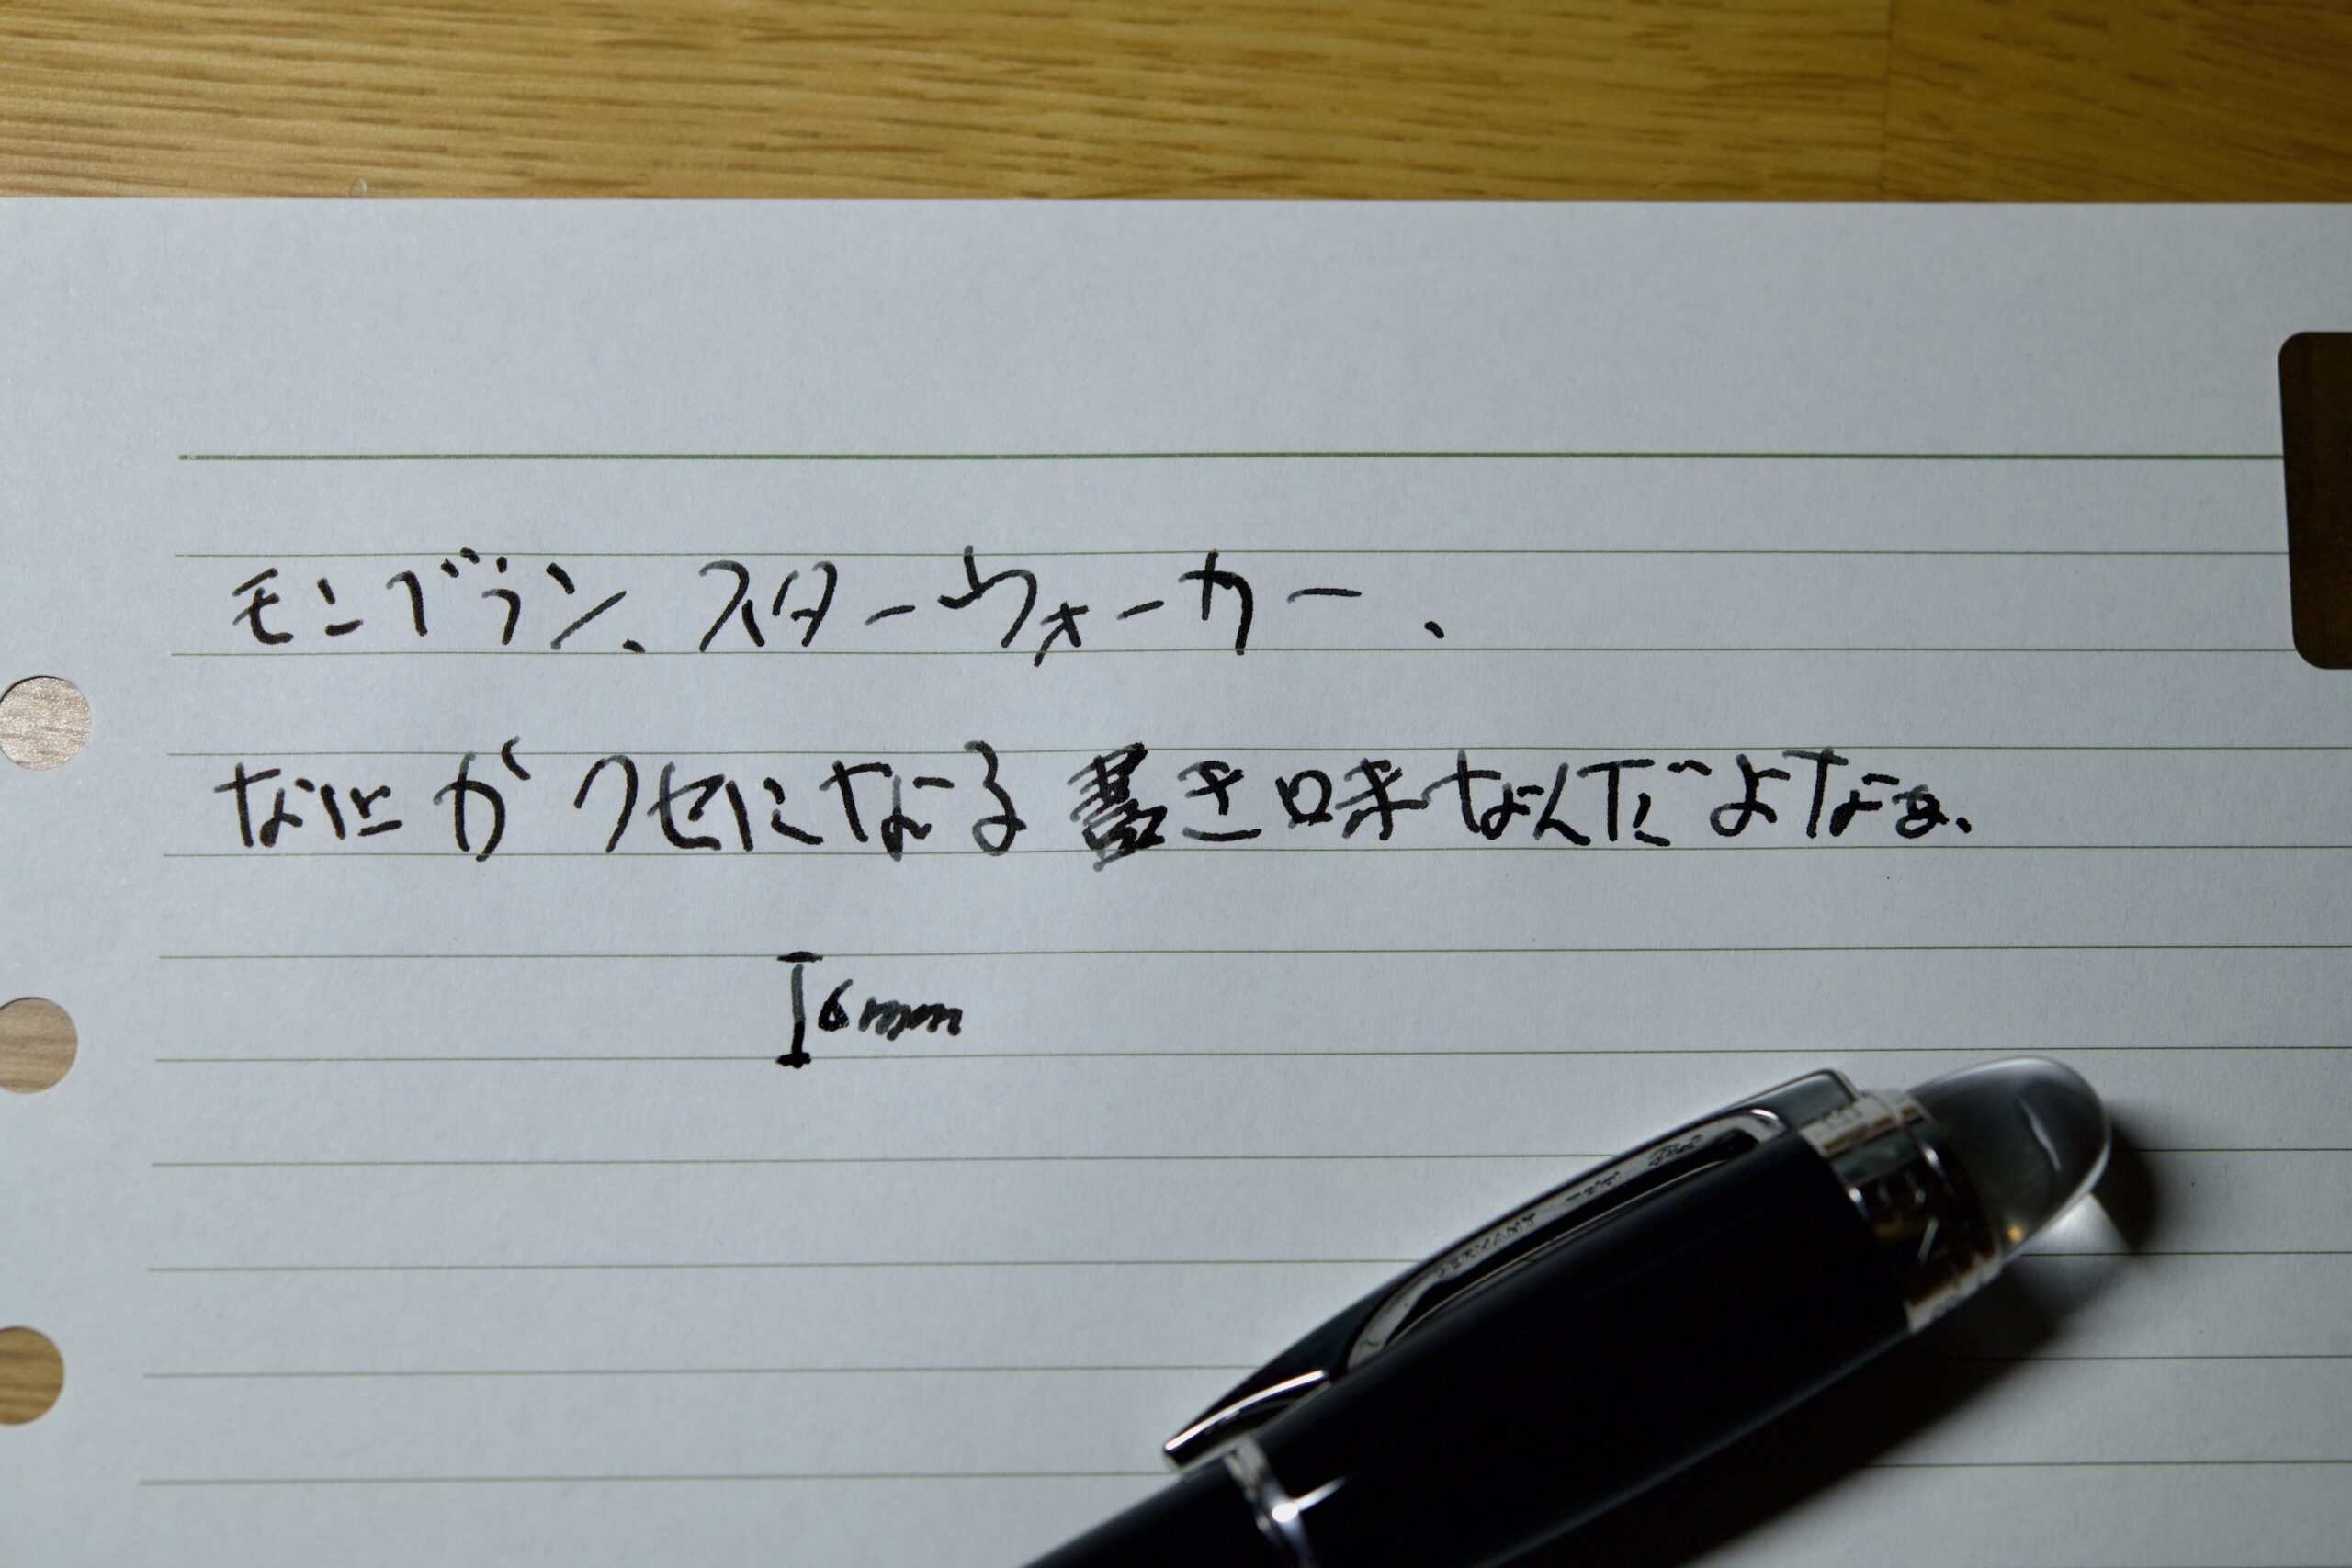 モンブラン、スターウォーカー、
なにがクセになる書き味なんだよなぁ、
6mm
GERMANY